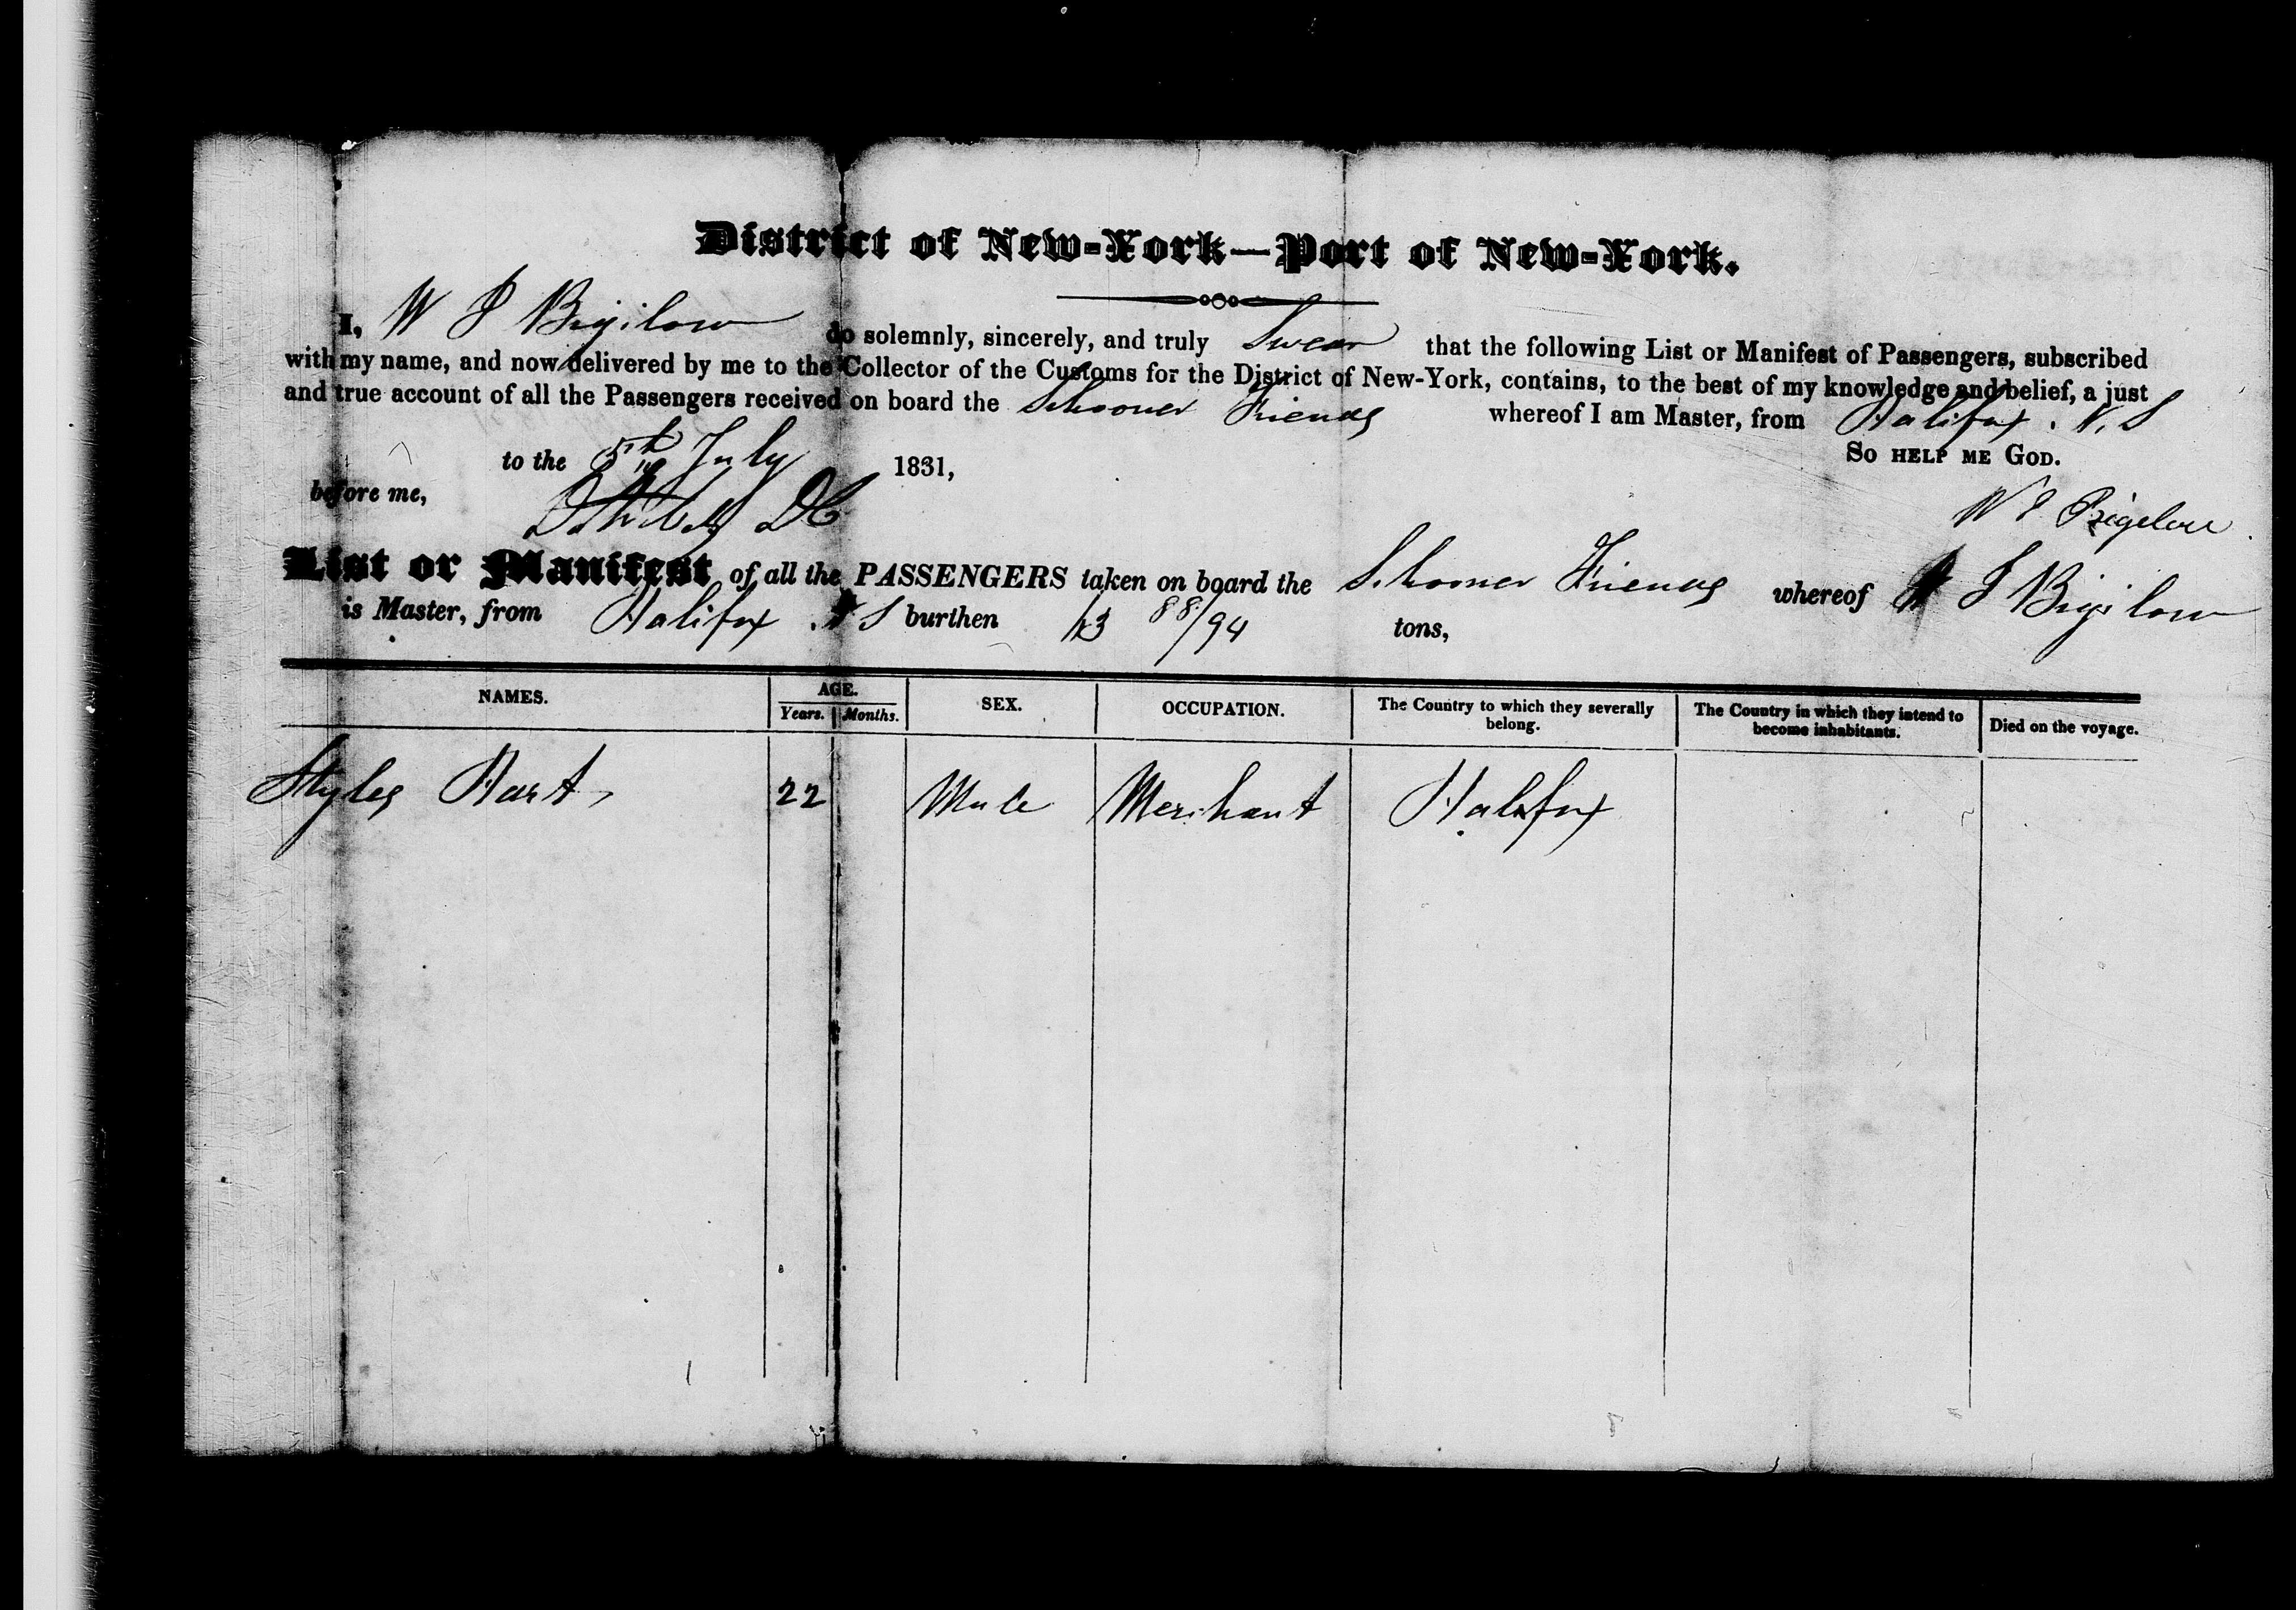 District of New-York—Port of New-York.
I, W I Bigilow do solemnly, sincerely, and truly Swear that the following List or Manifest of Passengers, subscribed
with my name, and now delivered by me to the Collector of the Customs for the District of New-York, contains, to the best of my knowledge and belief, a just
and true account of all the Passengers received on board the Schooner Friends whereof I am Master, from Halifax . N. S
to the 5th July 1831, So help me God.
before me, DC
W I Bigelow
List or Manifest of all the PASSENGERS taken on board the Schooner Friends whereof W I Bigilow
is Master, from Halifax . N S burthen 88/94 tons,
NAMES. AGE. SEX. OCCUPATION. The Country to which they severally belong. The Country in which they intend to become inhabitants. Died on the voyage.
Years. Months.
Styles Hart 22 Male Merchant Halifax